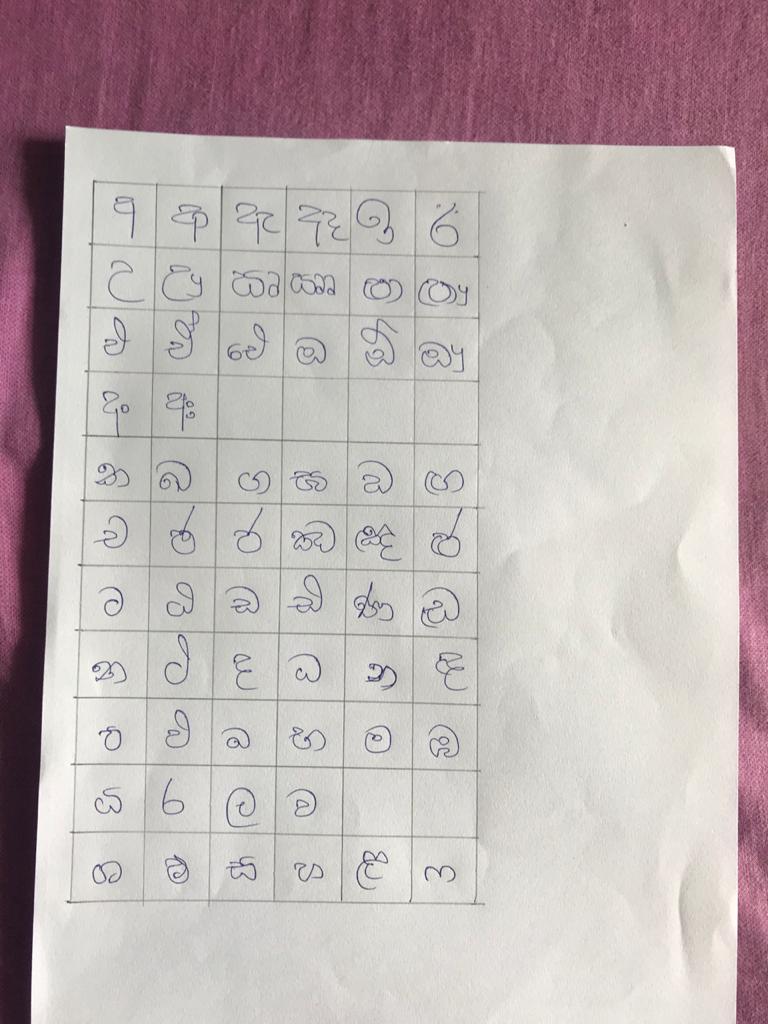 අ ආ ඇ ඈ ඉ ඊ
උ ඌ ඍ ඎ ඏ ඐ
එ ඒ ඓ ඔ ඕ ඖ
අං අඃ
ක ඛ ග ඝ ඞ ඟ
ච ඡ ජ ඣ ඤ ඦ
ට ඨ ඩ ඪ ණ ඬ
ත ථ ද ධ න ඳ
ප ඵ බ භ ම ඹ
ය ර ල ව
ශ ෂ ස හ ළ